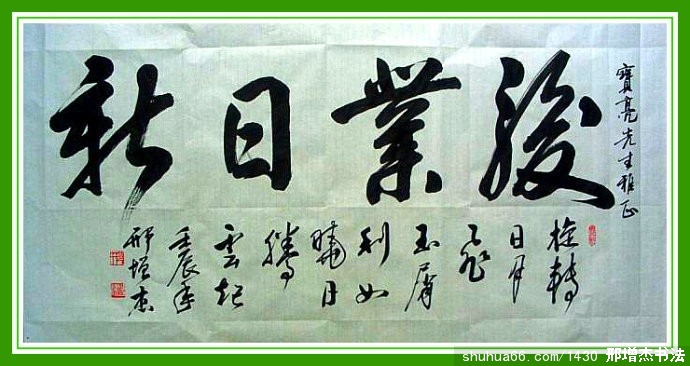 寶亮先生雅正
駿業日新
旋轉
日月
飛
玉屑
利如
曉日
騰
雲起
壬辰年
邢增杰
shuhua66.com/1430 邢增杰书法